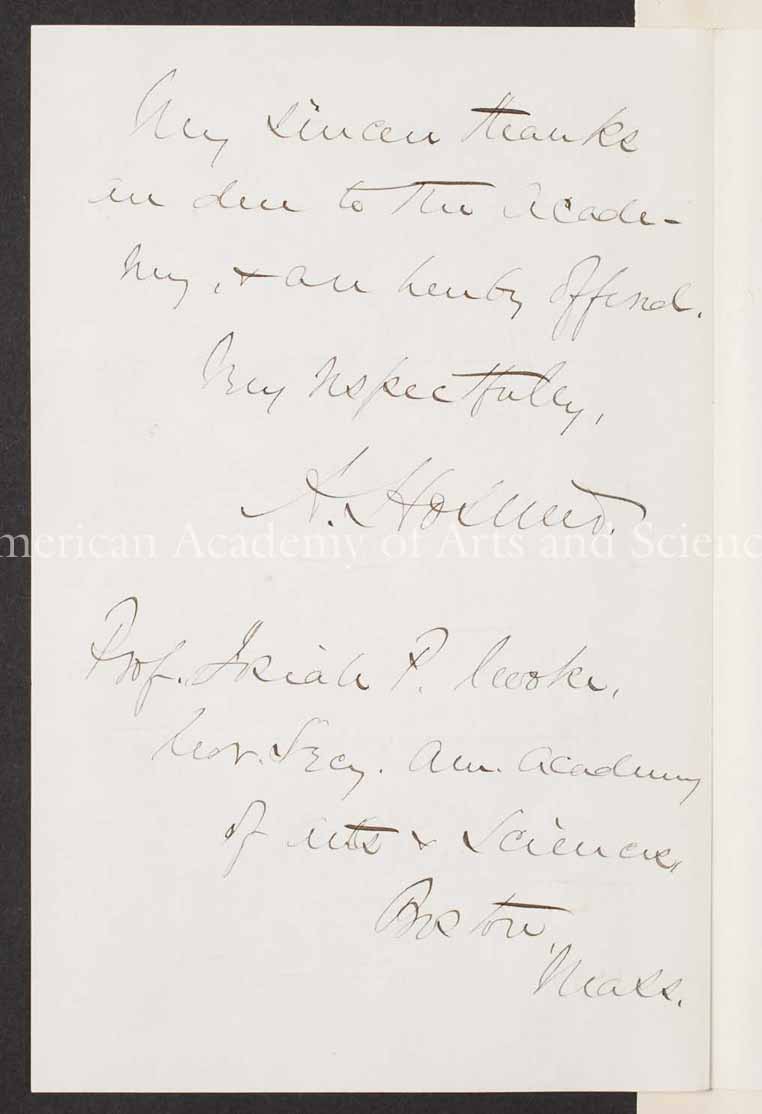 My sincere thanks
are due to the Acade-
my, & are hereby offered.
Very respectfully,
A.
American Academy of Arts and Scienc
Prof. Josiah P. Cooke,
Cor. Secy. Am. Academy
of Arts & Sciences,
Boston,
Mass.